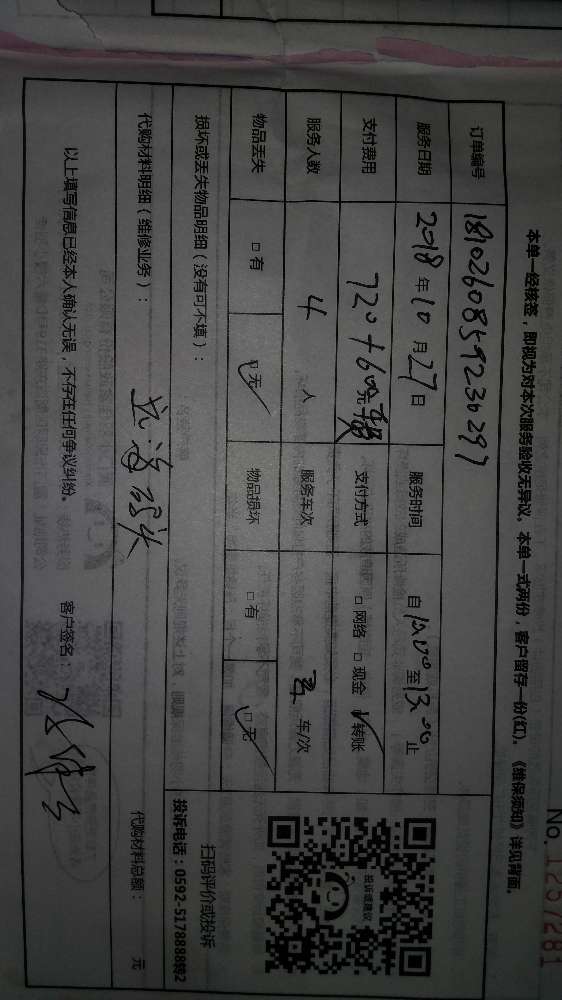 No.1257281
本单一经核签，即视为对本次服务验收无异议。本单一式两份，客户留存一份(红)。《维保须知》详见背面。
订单编号 181026085923029)
服务日期 2018年10月27日 服务时间 自12:00至13:00止
支付费用 720+600元 支付方式 □网络 □现金 ☑转账
服务人数 4人 服务车次 车/次
物品丢失 □有 ☑无 物品损坏 □有 ☑无
损坏或丢失物品明细（没有可不填）：
代购材料明细（维修业务）： 代购材料总额： 元
以上填写信息已经本人确认无误，不存在任何争议纠纷。 客户签名：
投诉或建议
扫码评价或投诉
投诉电话：0592-5178888转2